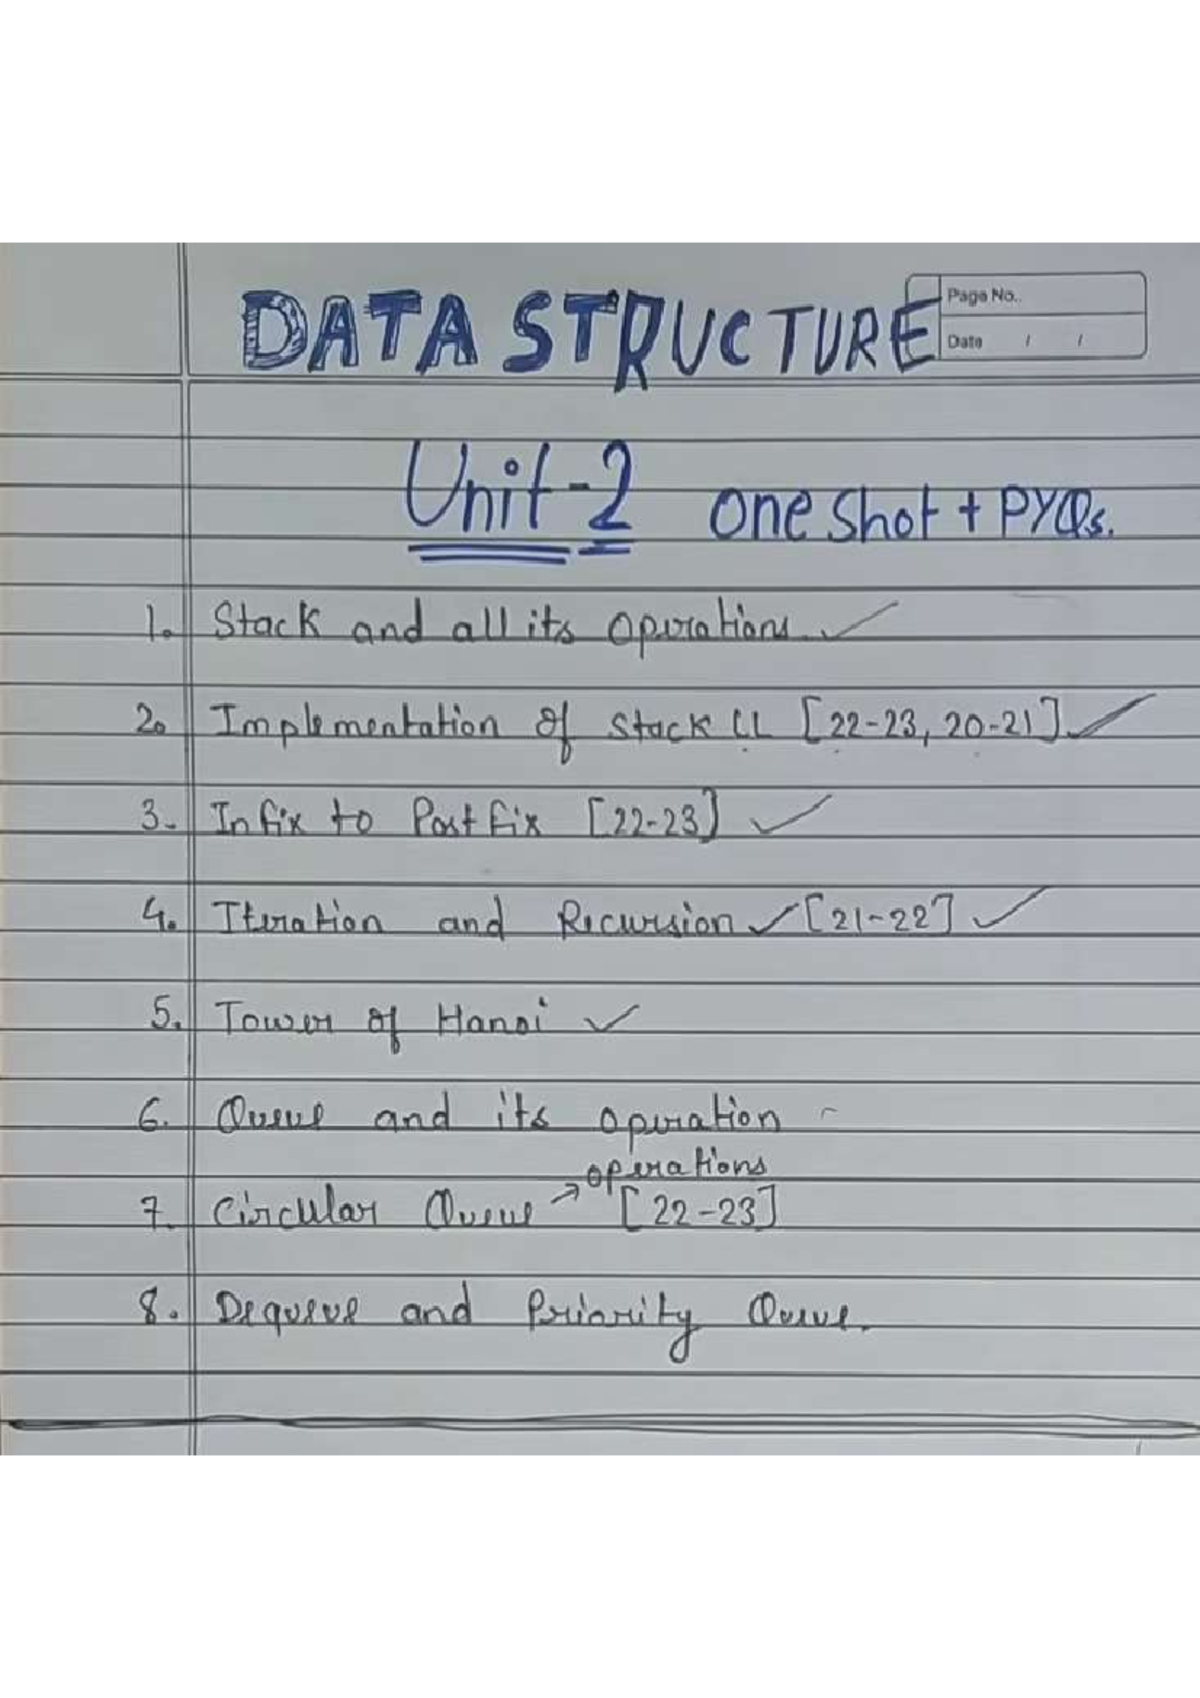 DATA STRUCTURE
Page No..
Date / /
Unit-2 One Shot + PYQs.
1. Stack and all its Operations ✓
2. Implementation of Stack LL [22-23, 20-21] ✓
3. Infix to Postfix [22-23] ✓
4. Iteration and Recursion ✓ [21-22] ✓
5. Tower of Hanoi ✓
6. Queue and its operation
operations
7. Circular Queue → [22-23]
8. Dequeue and Priority Queue.